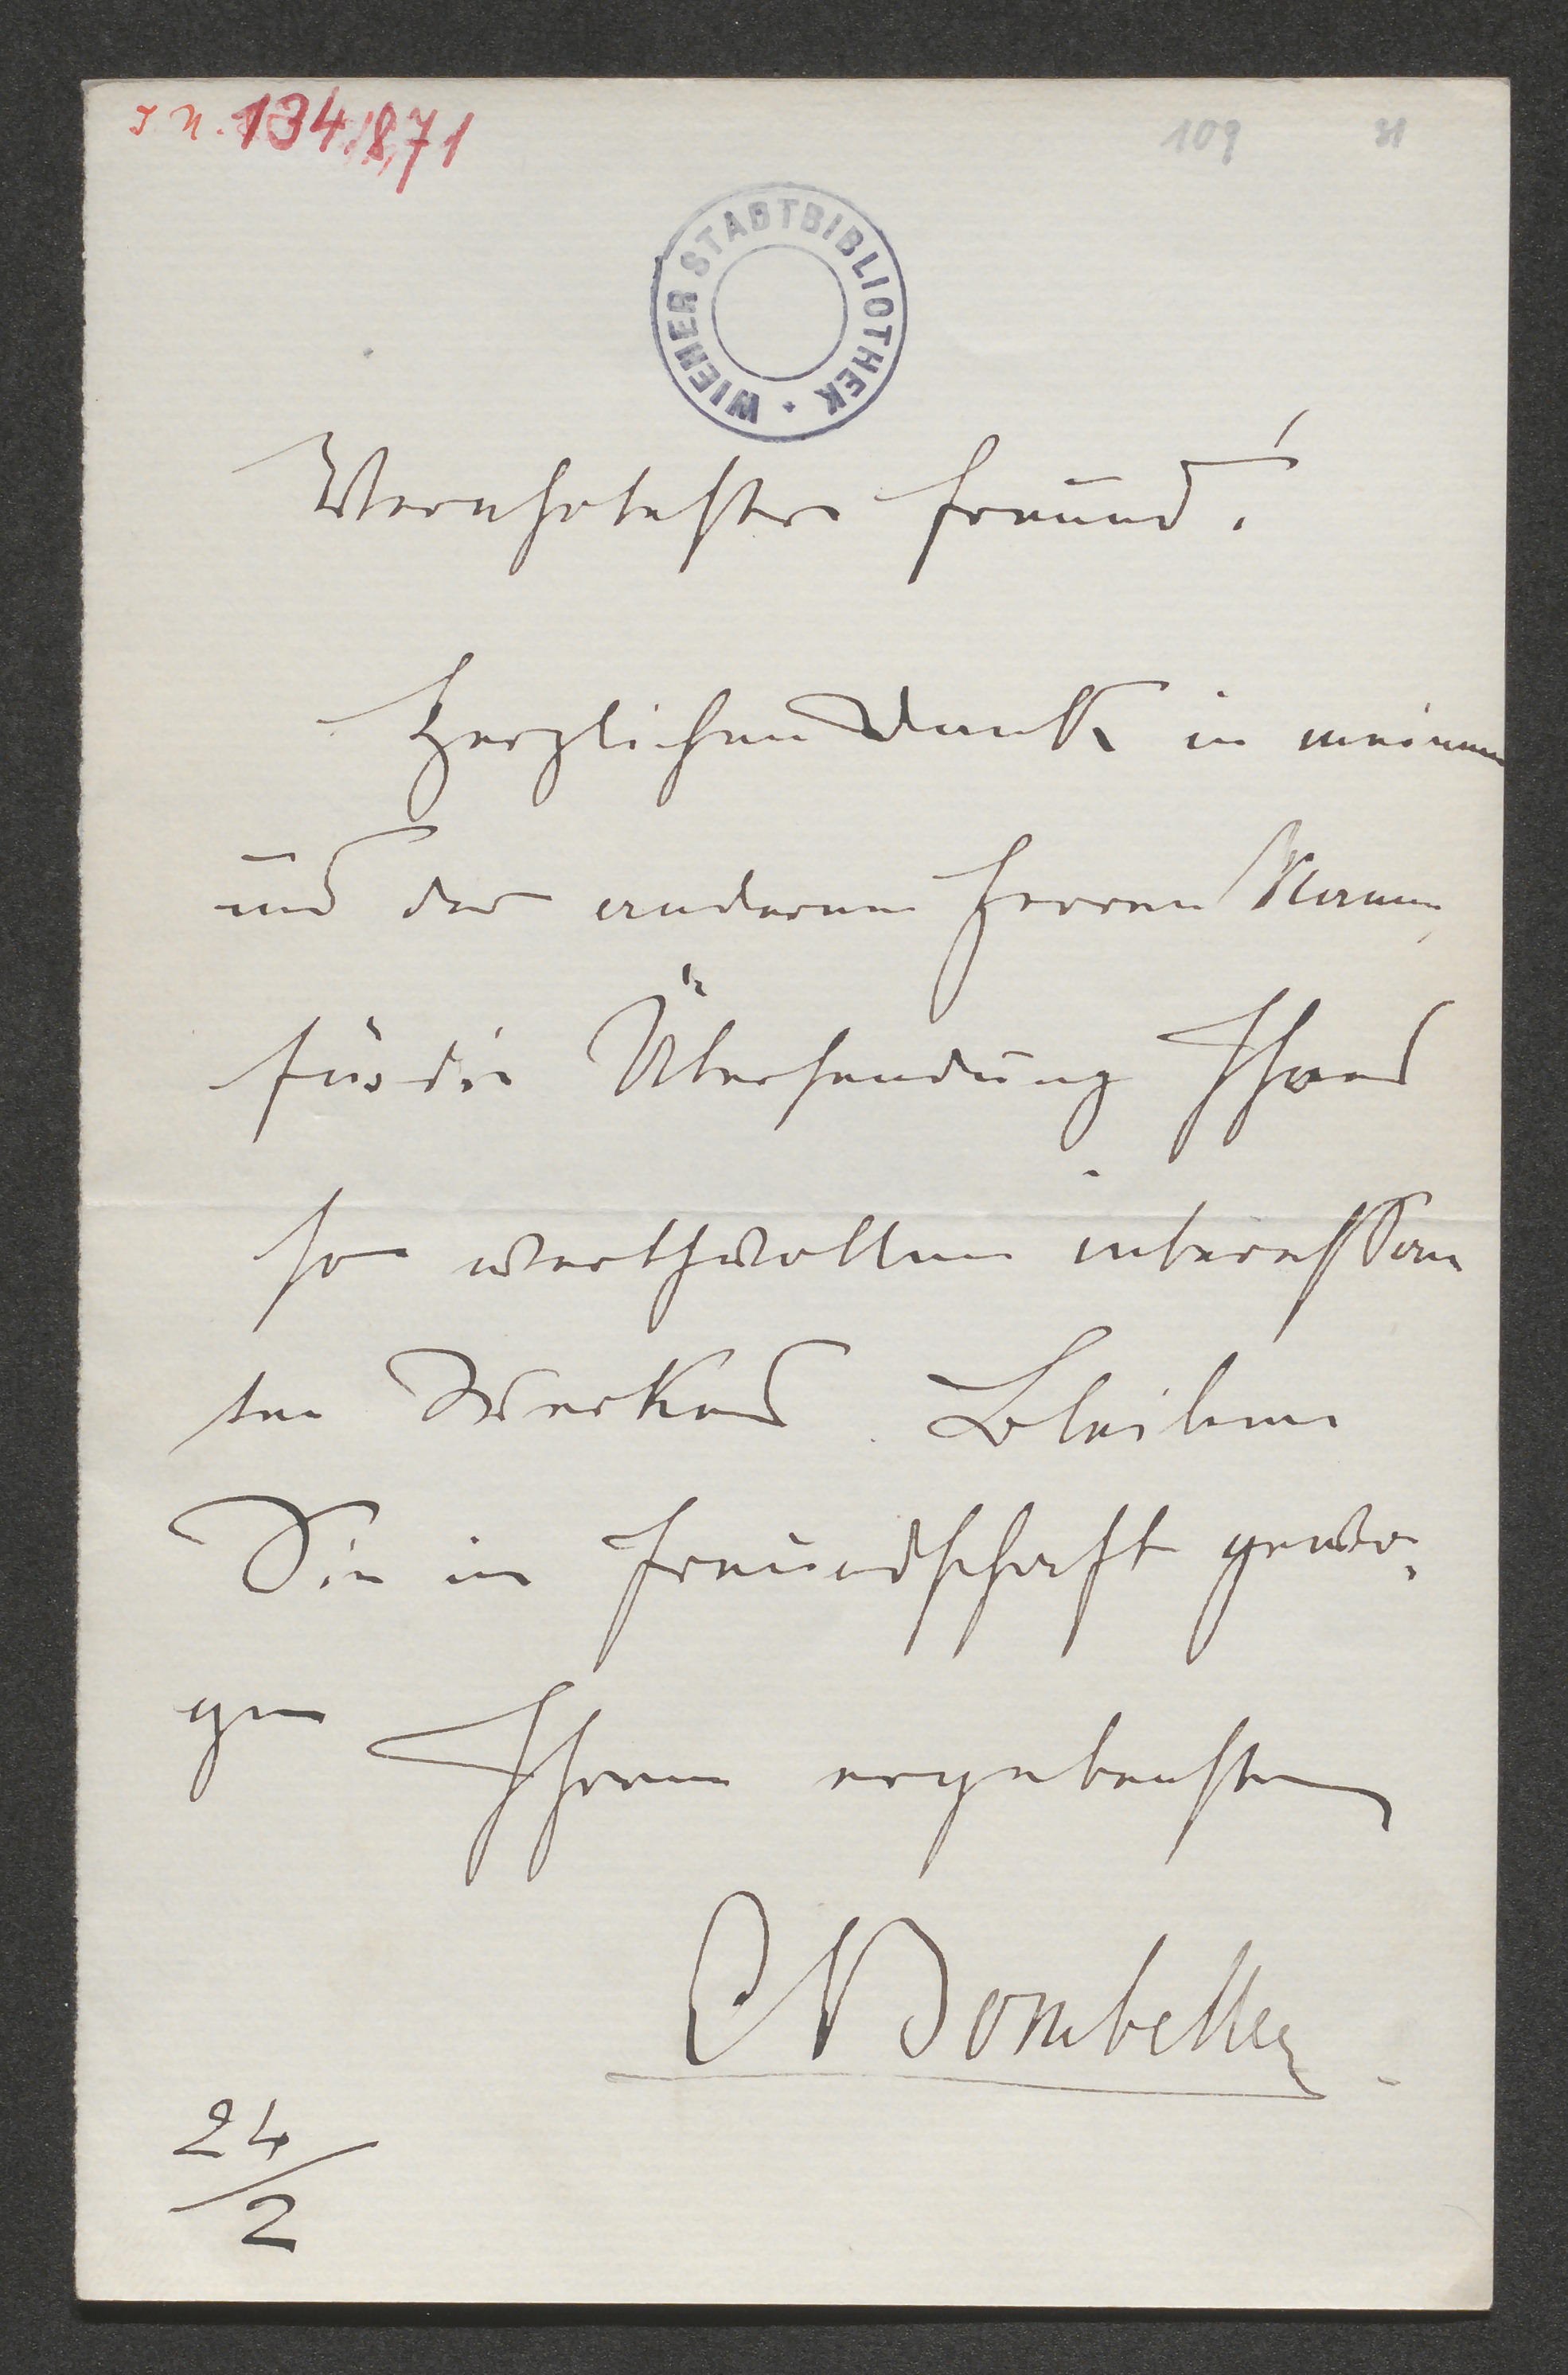 I. N. 134.871
109
31
WIENER STADTBIBLIOTHEK
Verehrtester Freund!
Herzlichen Dank in meinem
und der anderen Herren Namen
für die Übersendung Ihres
so werthvollen interessan
ten Werkes. Bleiben
Sie in Freundschaft gewo-
gen
Ihrem ergebensten
CBombelles
24/2